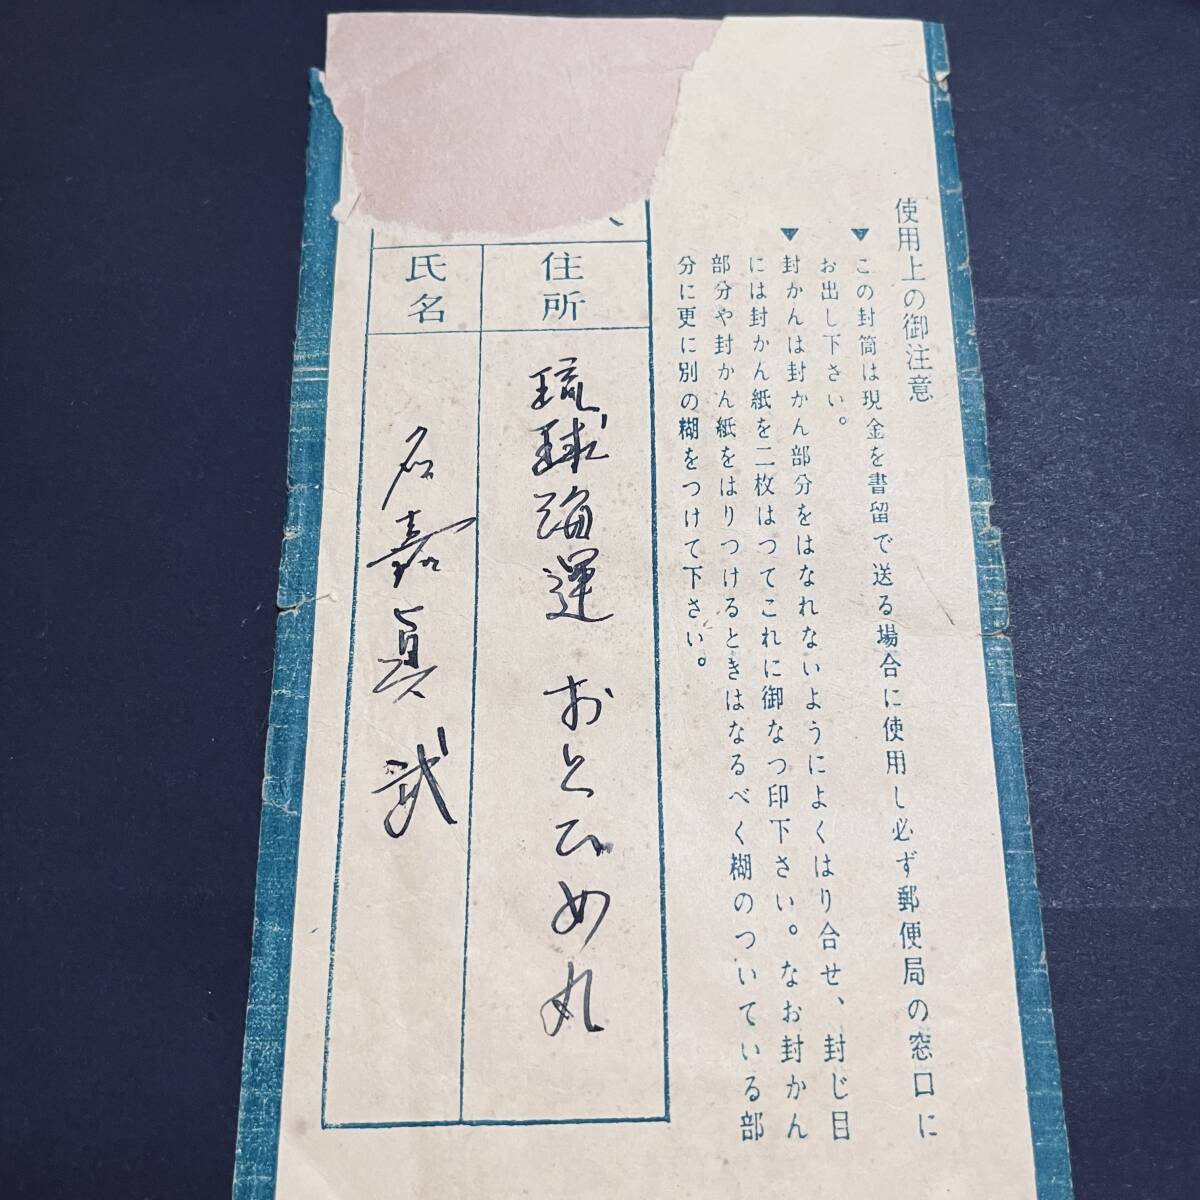 使用上の御注意
▼この封筒は現金を書留で送る場合に使用し必ず郵便局の窓口に
お出し下さい。
▼封かんは封かん部分をはなれないようによくはり合せ、封じ目
には封かん紙を二枚はつてこれに御なつ印下さい。なお封かん
部分や封かん紙をはりつけるときはなるべく糊のついている部
分に更に別の糊をつけて下さい。
住所
琉球海運 おとひめ丸
氏名
名嘉真 武